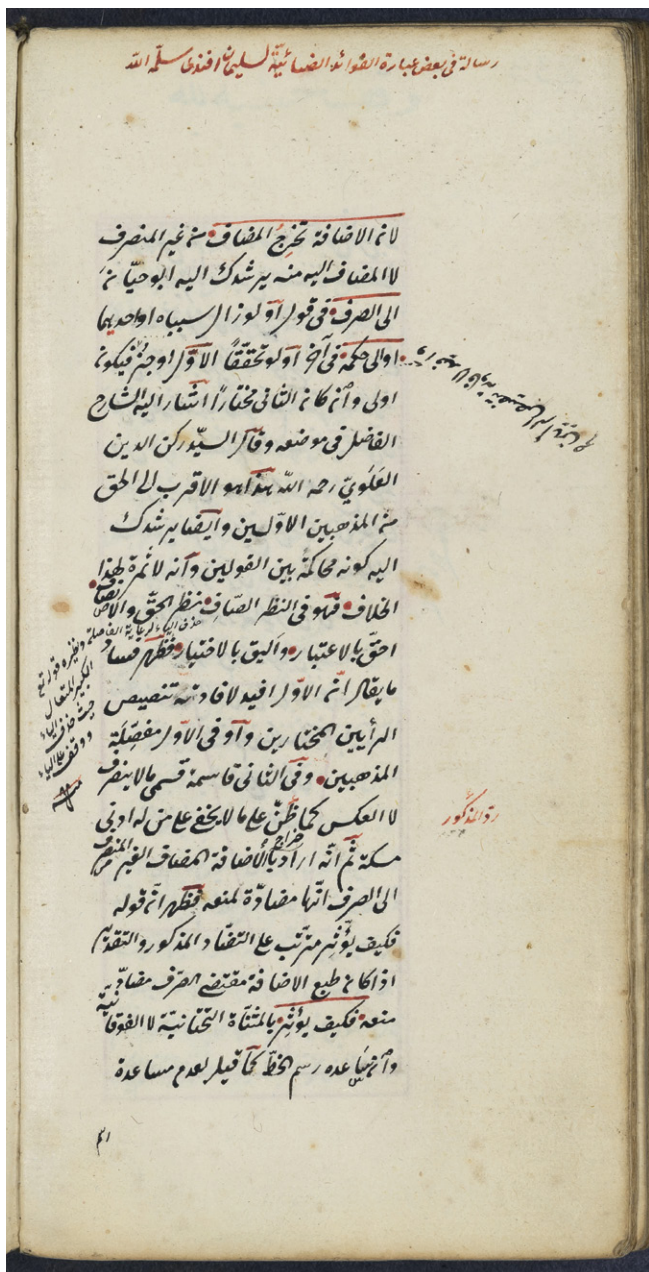 رسالة في بعض عبارة الفوائد الضيائية لسليمان افندى سلمه الله
لان الاضافة تخرج المضاف من غير المنصرف
لا المضاف اليه منه يرشدك اليه ابو حيان
الى الصرف في قول او لزوال سببيه او احديهما
اولى حكمه في آخر اولو تحققا الاول اوجز فيكون
اولى وان كان الثاني مختارا اشار اليه الشارح
الفاضل في موضعه وقال السيد ركن الدين
العلوي رحمه الله هذا هو الاقرب الى الحق
من المذهبين الاولين وايضا يرشدك
اليه كونه محاكمة بين القولين وانه لا ثمرة لهذا
الخلاف فهو في النظر الصاف نظر الحق والانصاف
حذف الياء لرعاية الفاصلة ونظيره قوله تع
الكبير المتعال
حيث حذف الياء
ووقف على الياء
منه
احق بالاعتبار واليق بالاختيار فظهر فساد
ما يقال ان الاول افيد لافادته تنصيص
الرأيين المختارين واو في الاول مفصلة
المذهبين وفي الثاني قاسمة قسمي ما لا ينصرف
لا العكس كما ظن على ما لا يخفى على من له ادنى
رد المذكور
مسكة ثم انه اراد بالاضافة المضاف الغير المنصرف
الى الصرف انها مضادة لمنعه فظهر ان قوله
فكيف يؤثر مترتب على التضاد المذكور والتقدير
اذا كان طبع الاضافة مقتضى الصرف مضاد
منعه فكيف يؤثر بالمثناة التحتانية لا الفوقانية
وان ساعده رسم الخط كما قيل لعدم مساعدة